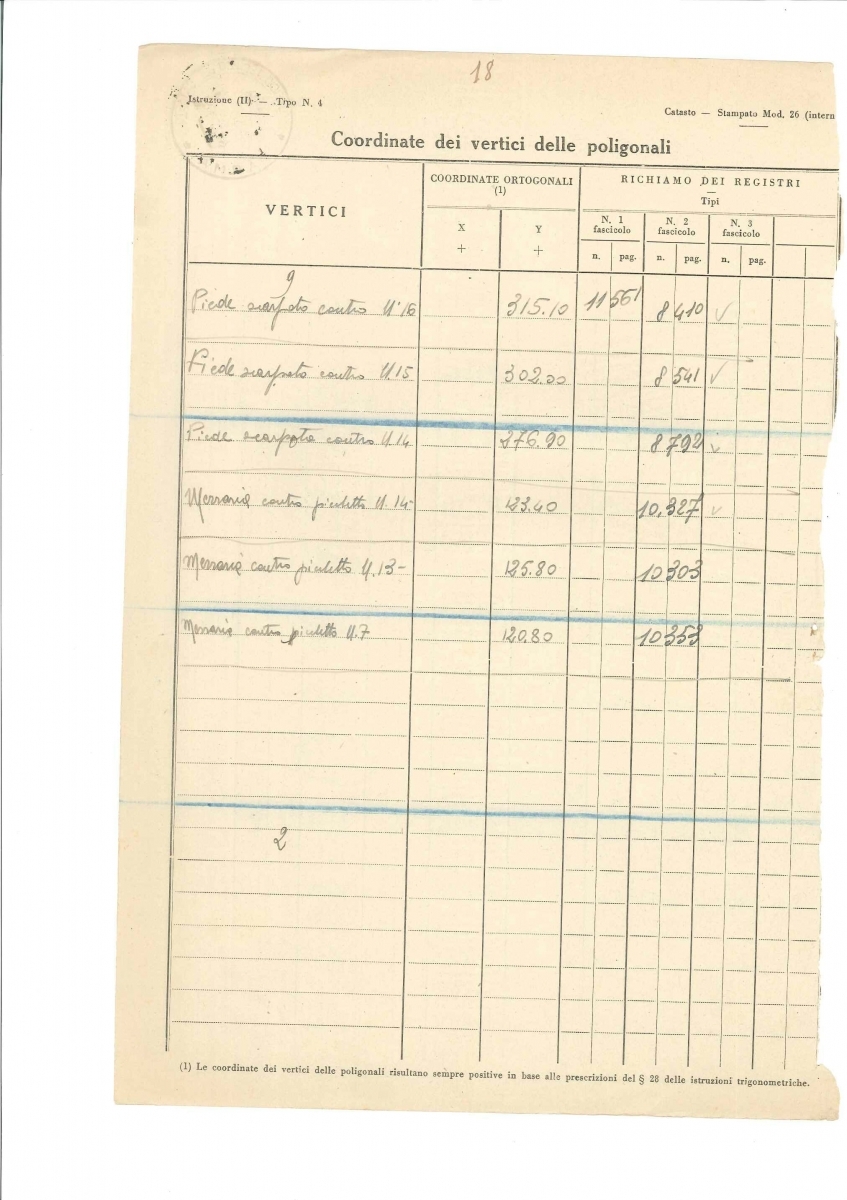 18
Istruzione (II) — Tipo N. 4
Catasto — Stampato Mod. 26 (intern
Coordinate dei vertici delle poligonali
VERTICI
COORDINATE ORTOGONALI
(1)
RICHIAMO DEI REGISTRI
Tipi
X
+
Y
+
N. 1
fascicolo
N. 2
fascicolo
N. 3
fascicolo
n. pag. n. pag. n. pag.
9
Piede scarpata contro N° 16 315.10 11561 8 410 ✓
Piede scarpata contro N.15 302.00 8 541 ✓
Piede scarpata contro N.14 276.90 8 792 ✓
contro picchetto N. 14- 123.40 10.327 ✓
contro picchetto N.13- 125.80 10303
contro picchetto N.7 120.80 10353
2
(1) Le coordinate dei vertici delle poligonali risultano sempre positive in base alle prescrizioni del § 28 delle istruzioni trigonometriche.